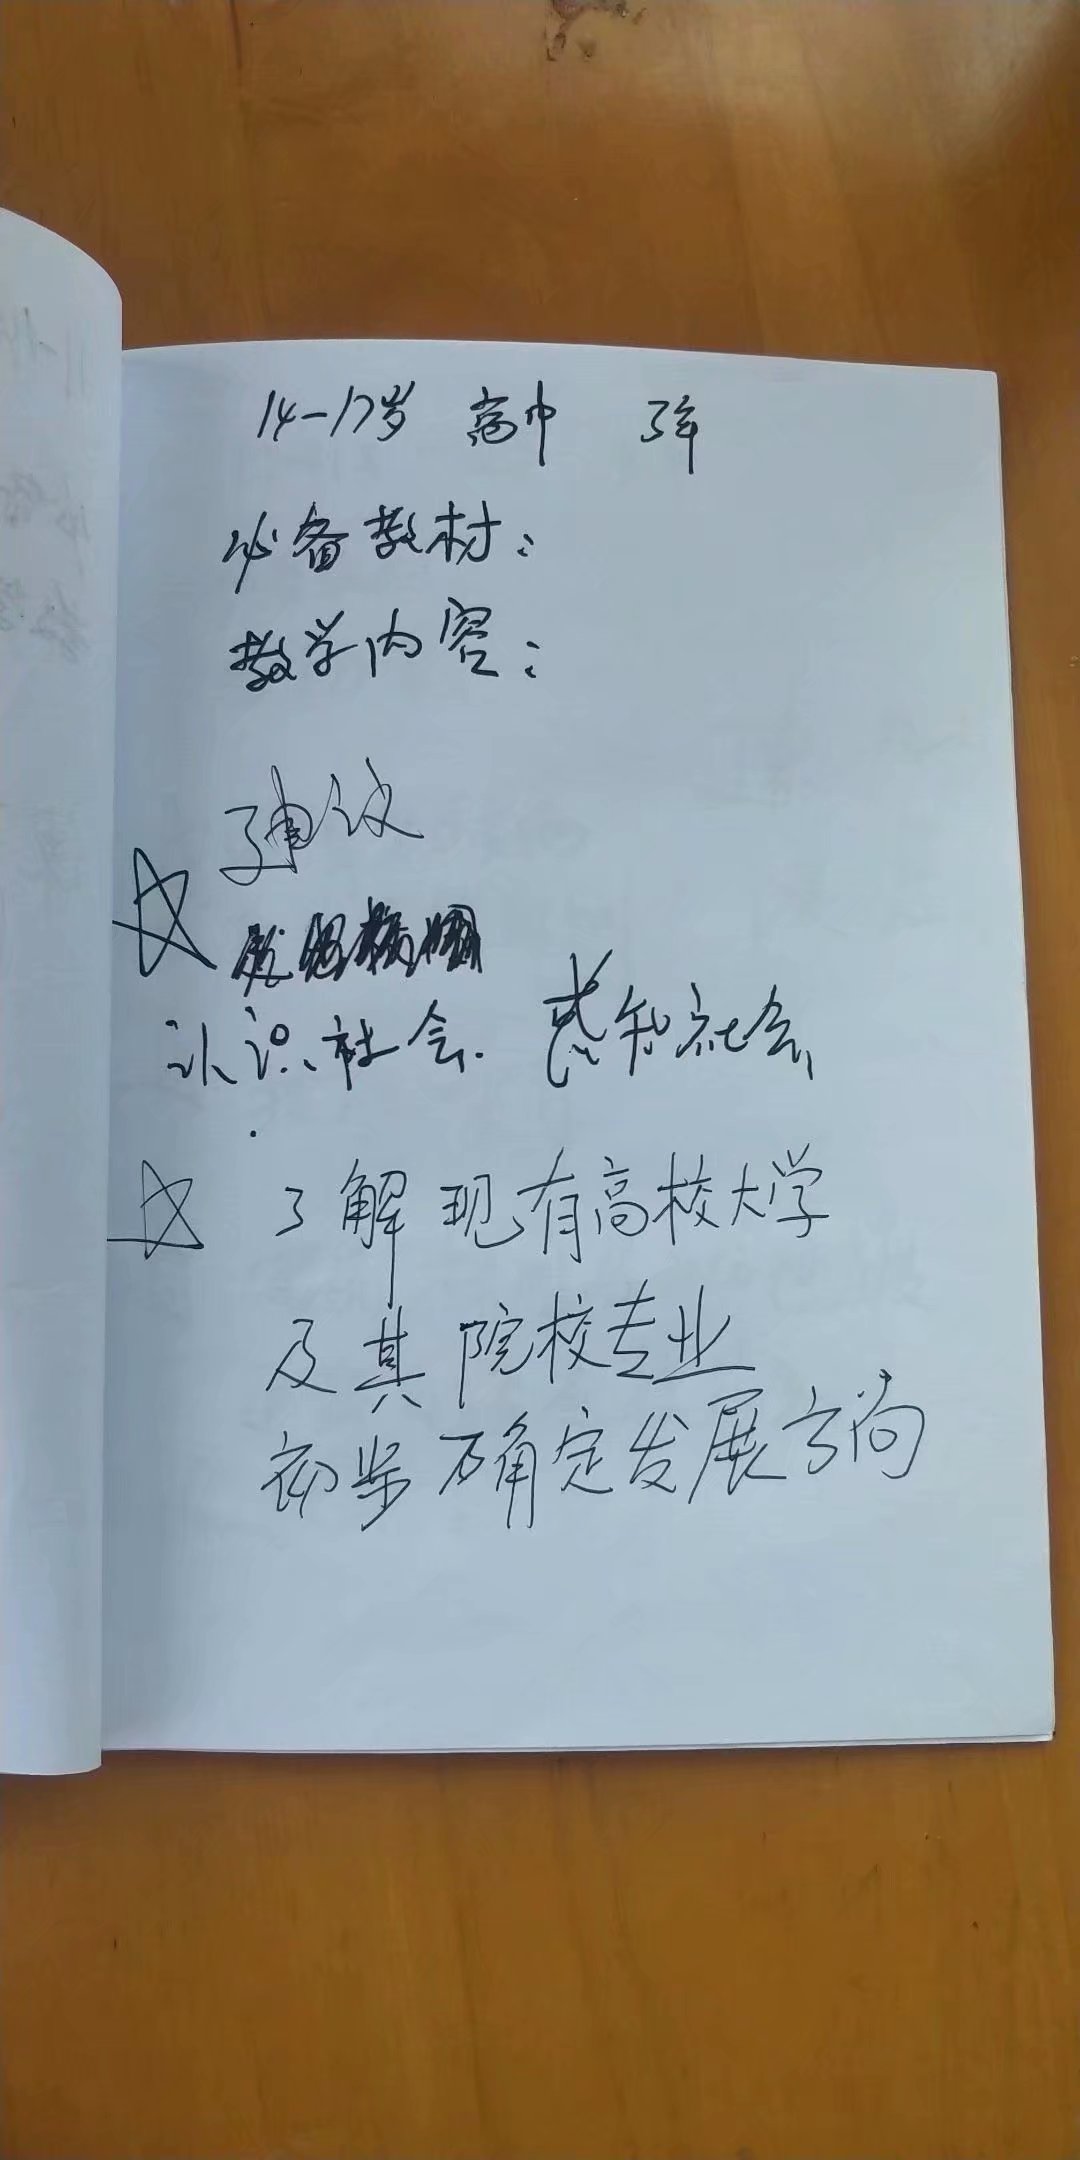 14-17岁 高中 3年
必备教材：
教学内容：
认识社会. 感知社会
了解现有高校大学
及其院校专业
初步确定发展方向